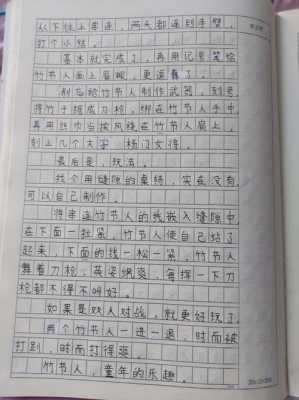 从下往上串连，两头都连到手臂，
打个小结。
基本就完成了，再用记号笔给
竹节人画上眉眼，更逼真了。
别忘给竹节人制作武器，刻号
将竹子插成刀枪，绑在竹节人手中
再用丝巾当披风绕在竹节人肩上，
刻上几个大字
最后是，玩法。
找个用缝隙的桌杨，实在没有，
可以自己制作。
将串连竹节人的线嵌入缝隙中
在下面一拉紧，竹节人便自己站了
起来，下面的线一松一紧，竹节人
舞着刀枪，英姿飒爽，每挥一下刀
枪都不得不叫好。
如果是双人对战，就更好玩了。
两个竹节人一进一退，时而
打趴，时而打得爽。
竹节人，童年的乐趣。